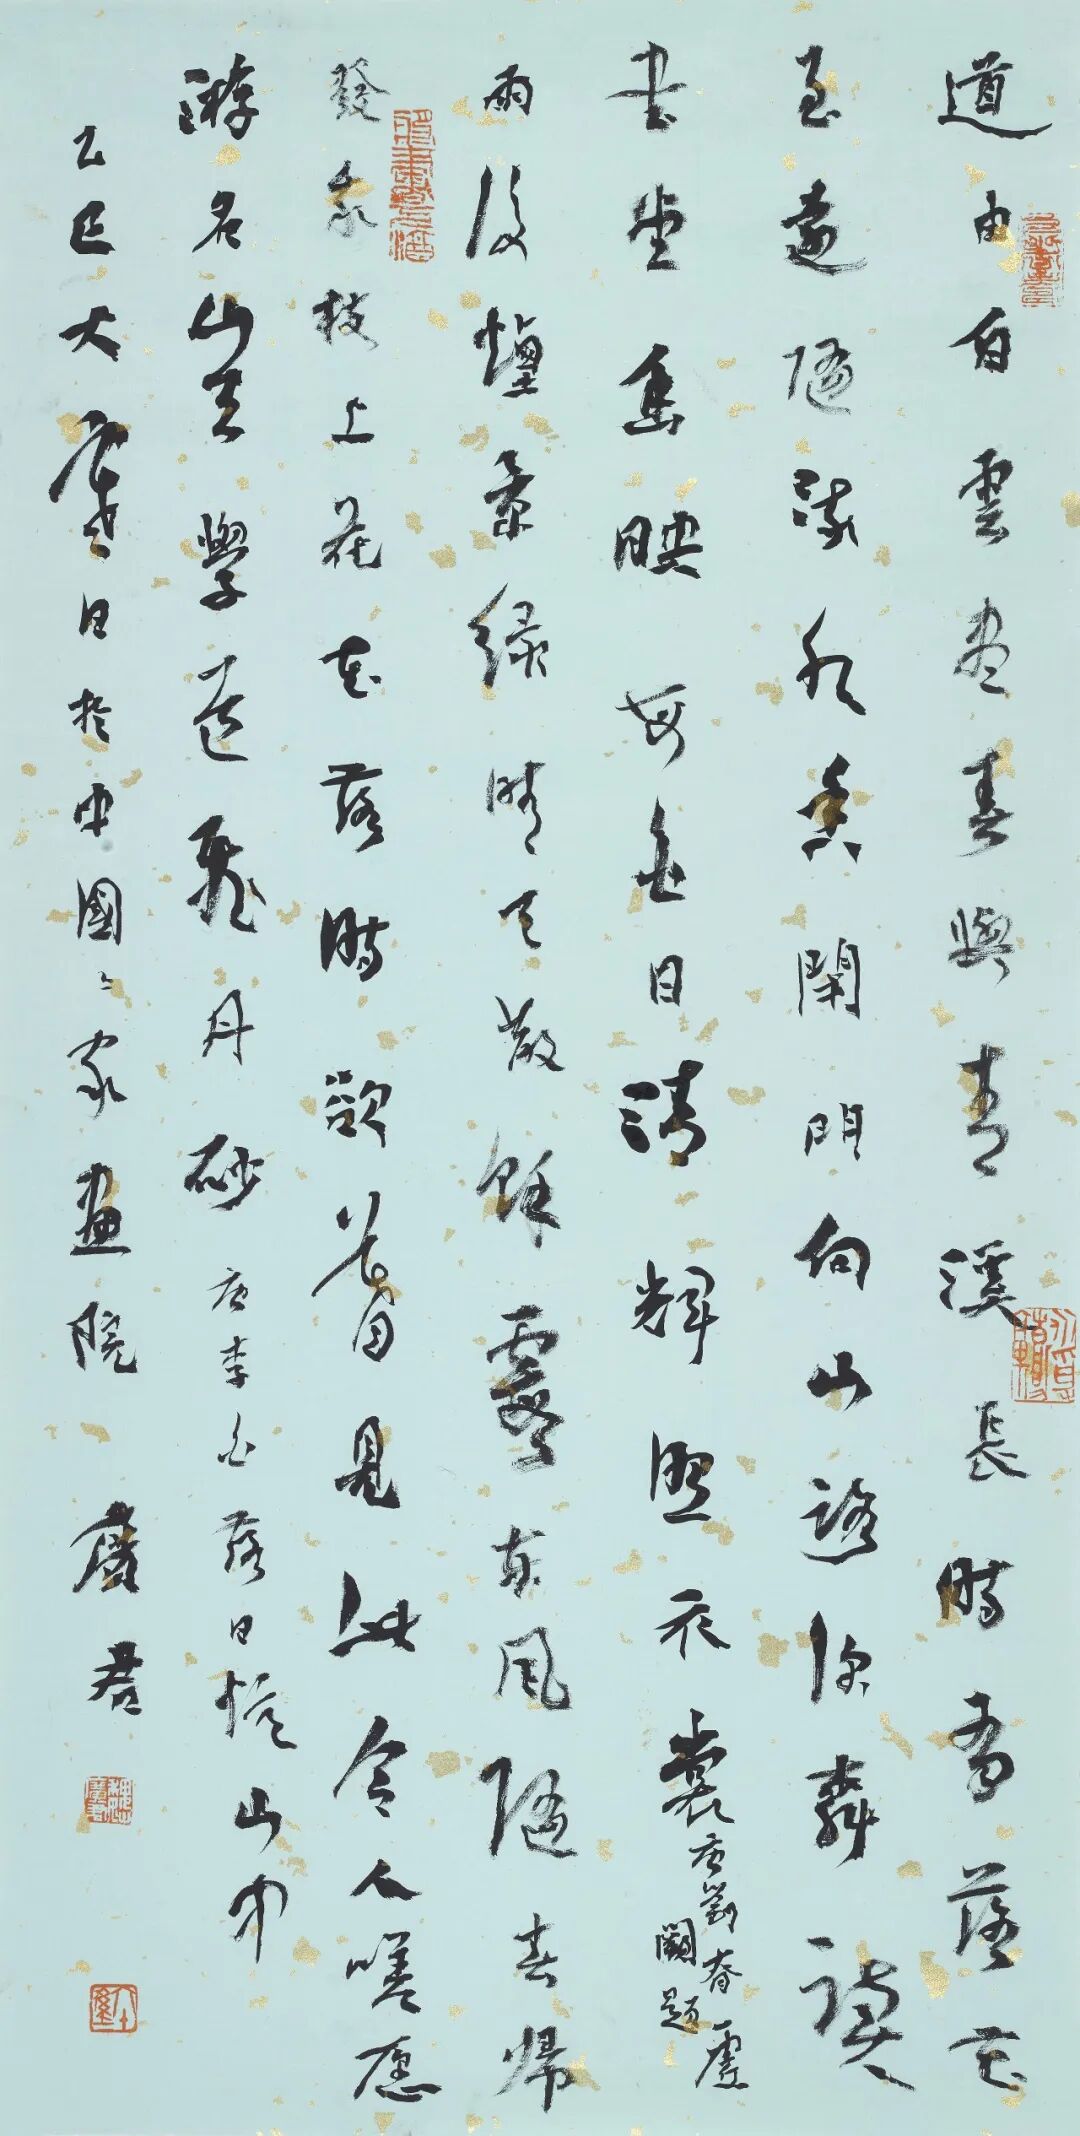 道由白雲盡春與青溪長時有落花
至遠隨流水香閑門向山路深柳讀
書堂幽映每白日清輝照衣裳
唐劉眘虛
闕題
雨後煙景綠晴天散餘霞東風隨春歸
發我枝上花花落時欲暮見此令人嗟愿
游名山去學道飛丹砂 唐李白落日憶山中
乙巳大寒日於中國〻家畫院 廣君